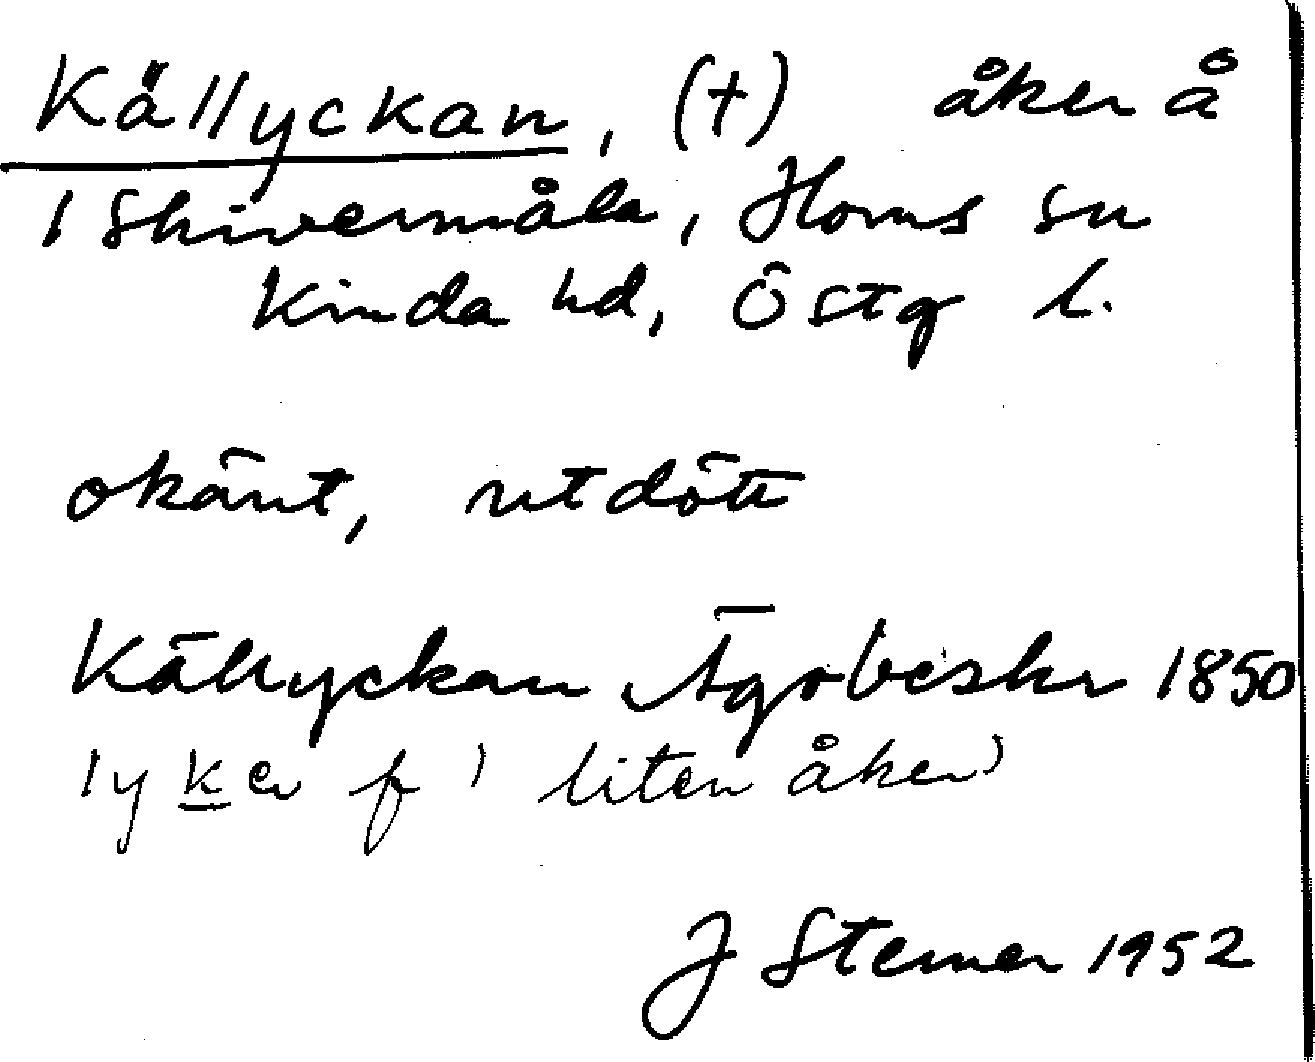 Källyckan, (†) åker å
1 Skivermåla, Horns sn
Kinda hd, Östg l.
okänt, utdött
Källyckan Ägobeskr 1850
lyker f 'liten åker'
J Sterner 1952